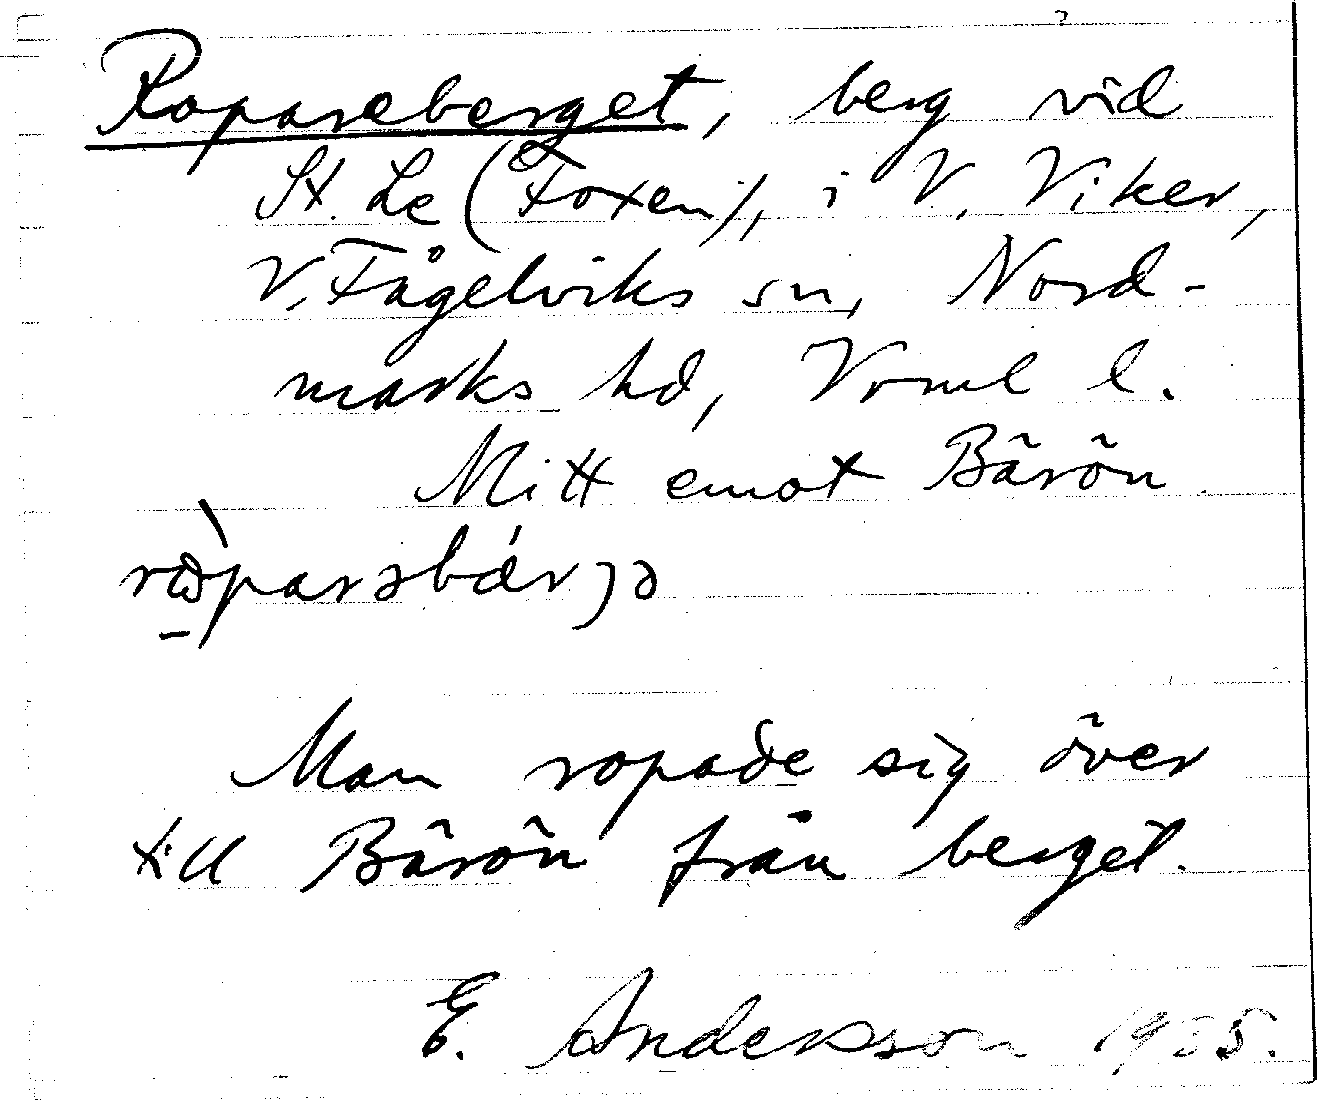 Ropareberget, berg vid
St. Le (Foxen), i V. Viker,
V. Fågelviks sn, Nord-
marks hd, Vrml l.
Mitt emot Bärön
Man ropade sig över
till Bärön från berget.
E. Andersson